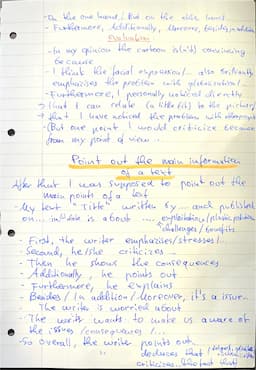 - On the one hand / But on the other hand
- Furthermore, Additionally, Moreover, Besides, In addition
Evaluation
- In my opinion the cartoon is(n't) convincing
because
- I think the facial expression/... also
emphasizes the problem with globalisation/...
- Furthermore, I personally noticed directly
that I can relate (a little bit) to the picture/
that I have noticed the problem with
- (But one point I would criticize because
from my point of view...
Point out the main information
of a text
After that I was supposed to point out the
main points of a text
- My text "Title" written by ... and published
on... in/date is about ....
challenges / benefits
- First, the writer emphasizes/stresses/...
- Second, he/she criticizes ...
- Then he shows the consequences
- Additionally he points out
- Furthermore, he explains
- Besides / In addition / Moreover, it's a issue...
- The writer is worried about
- The writer wants to make us aware of
the issues / consequences / ...
- So overall, the writer points out...
deduces that
criticizes the fact that